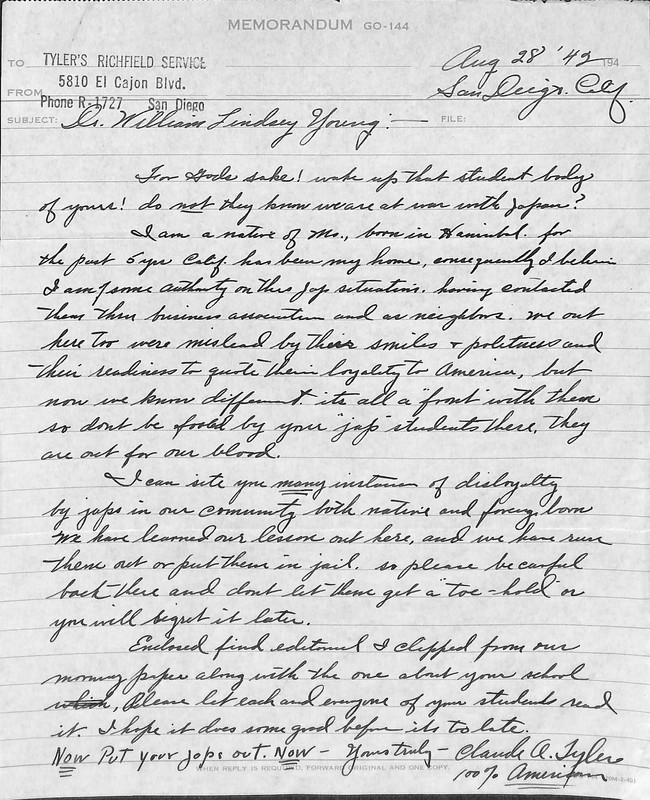 MEMORANDUM GO-144
TO TYLER'S RICHFIELD SERVICE Aug 28 '42 194
5810 El Cajon Blvd. San Diego. Calif.
FROM
Phone R-1727 San Diego
SUBJECT: Dr. William Lindsey Young:— FILE:
For Gods sake! wake up that student body
of yours! do not they know we are at war with Japan?
I am a native of Mo., born in Hannibal. for
the past 5 yrs Calif. has been my home, consequently I believe
I am some authority on this Jap situation. having contacted
them thru business association and as neighbors. we out
here too were mislead by their smiles + politness and
their readiness to quote their loyality to America, but
now we know different. its all a "front" with them
so dont be fooled by your "jap" students there, they
are out for our blood.
I can site you many instances of disloyalty
by japs in our comunity both native and foreign born
We have learned our lesson out here, and we have run
them out or put them in jail. so please be careful
back there and dont let them get a "toe-hold" or
you will regret it later.
Enclosed find editorial I clipped from our
morning paper along with the one about your school
which, Please let each and everyone of your students read
it. I hope it does some good before its too late.
Now Put your japs out. Now — Yours truly — Claude A. Tyler
WHEN REPLY IS REQUIRED, FORWARD ORIGINAL AND ONE COPY.
100% American